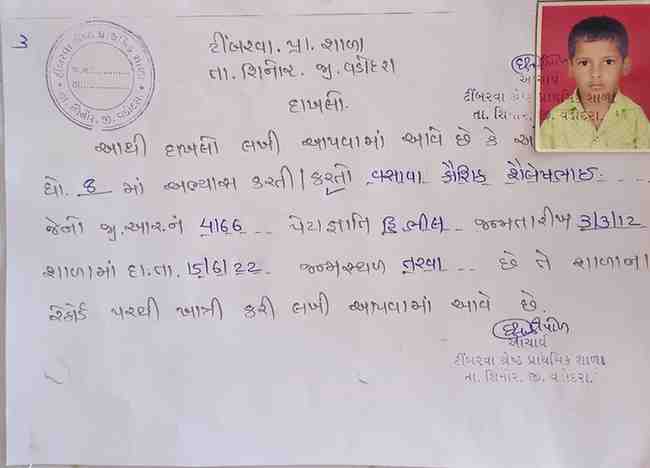 ૩
ટીંબરવા. પ્રા. શાળા
તા. શિનોર. જી. વડોદરા
દાખલો.
આચાર્ય
ટીંબરવા શ્રેષ્ઠ પ્રાથમિક શાળા
તા. શિનોર, જી. વડોદરા.
આથી દાખલો લખી આપવામાં આવે છે કે આ
ધો. ૮ માં અભ્યાસ કરતી / કરતો વસાવા કૌશિક શૈલેષભાઈ
જેનો જી. આર. નં 4166 પેટાજ્ઞાતિ હિ. ભીલ જન્મતારીખ 3/3/12
શાળામાં દા. તા. 15/6/22. જન્મસ્થળ તરવા છે તે શાળાના
રેકોર્ડ પરથી ખાત્રી કરી લખી આપવામાં આવે છે.
આચાર્ય
ટીંબરવા શ્રેષ્ઠ પ્રાથમિક શાળા
તા. શિનોર. જી. વડોદરા.